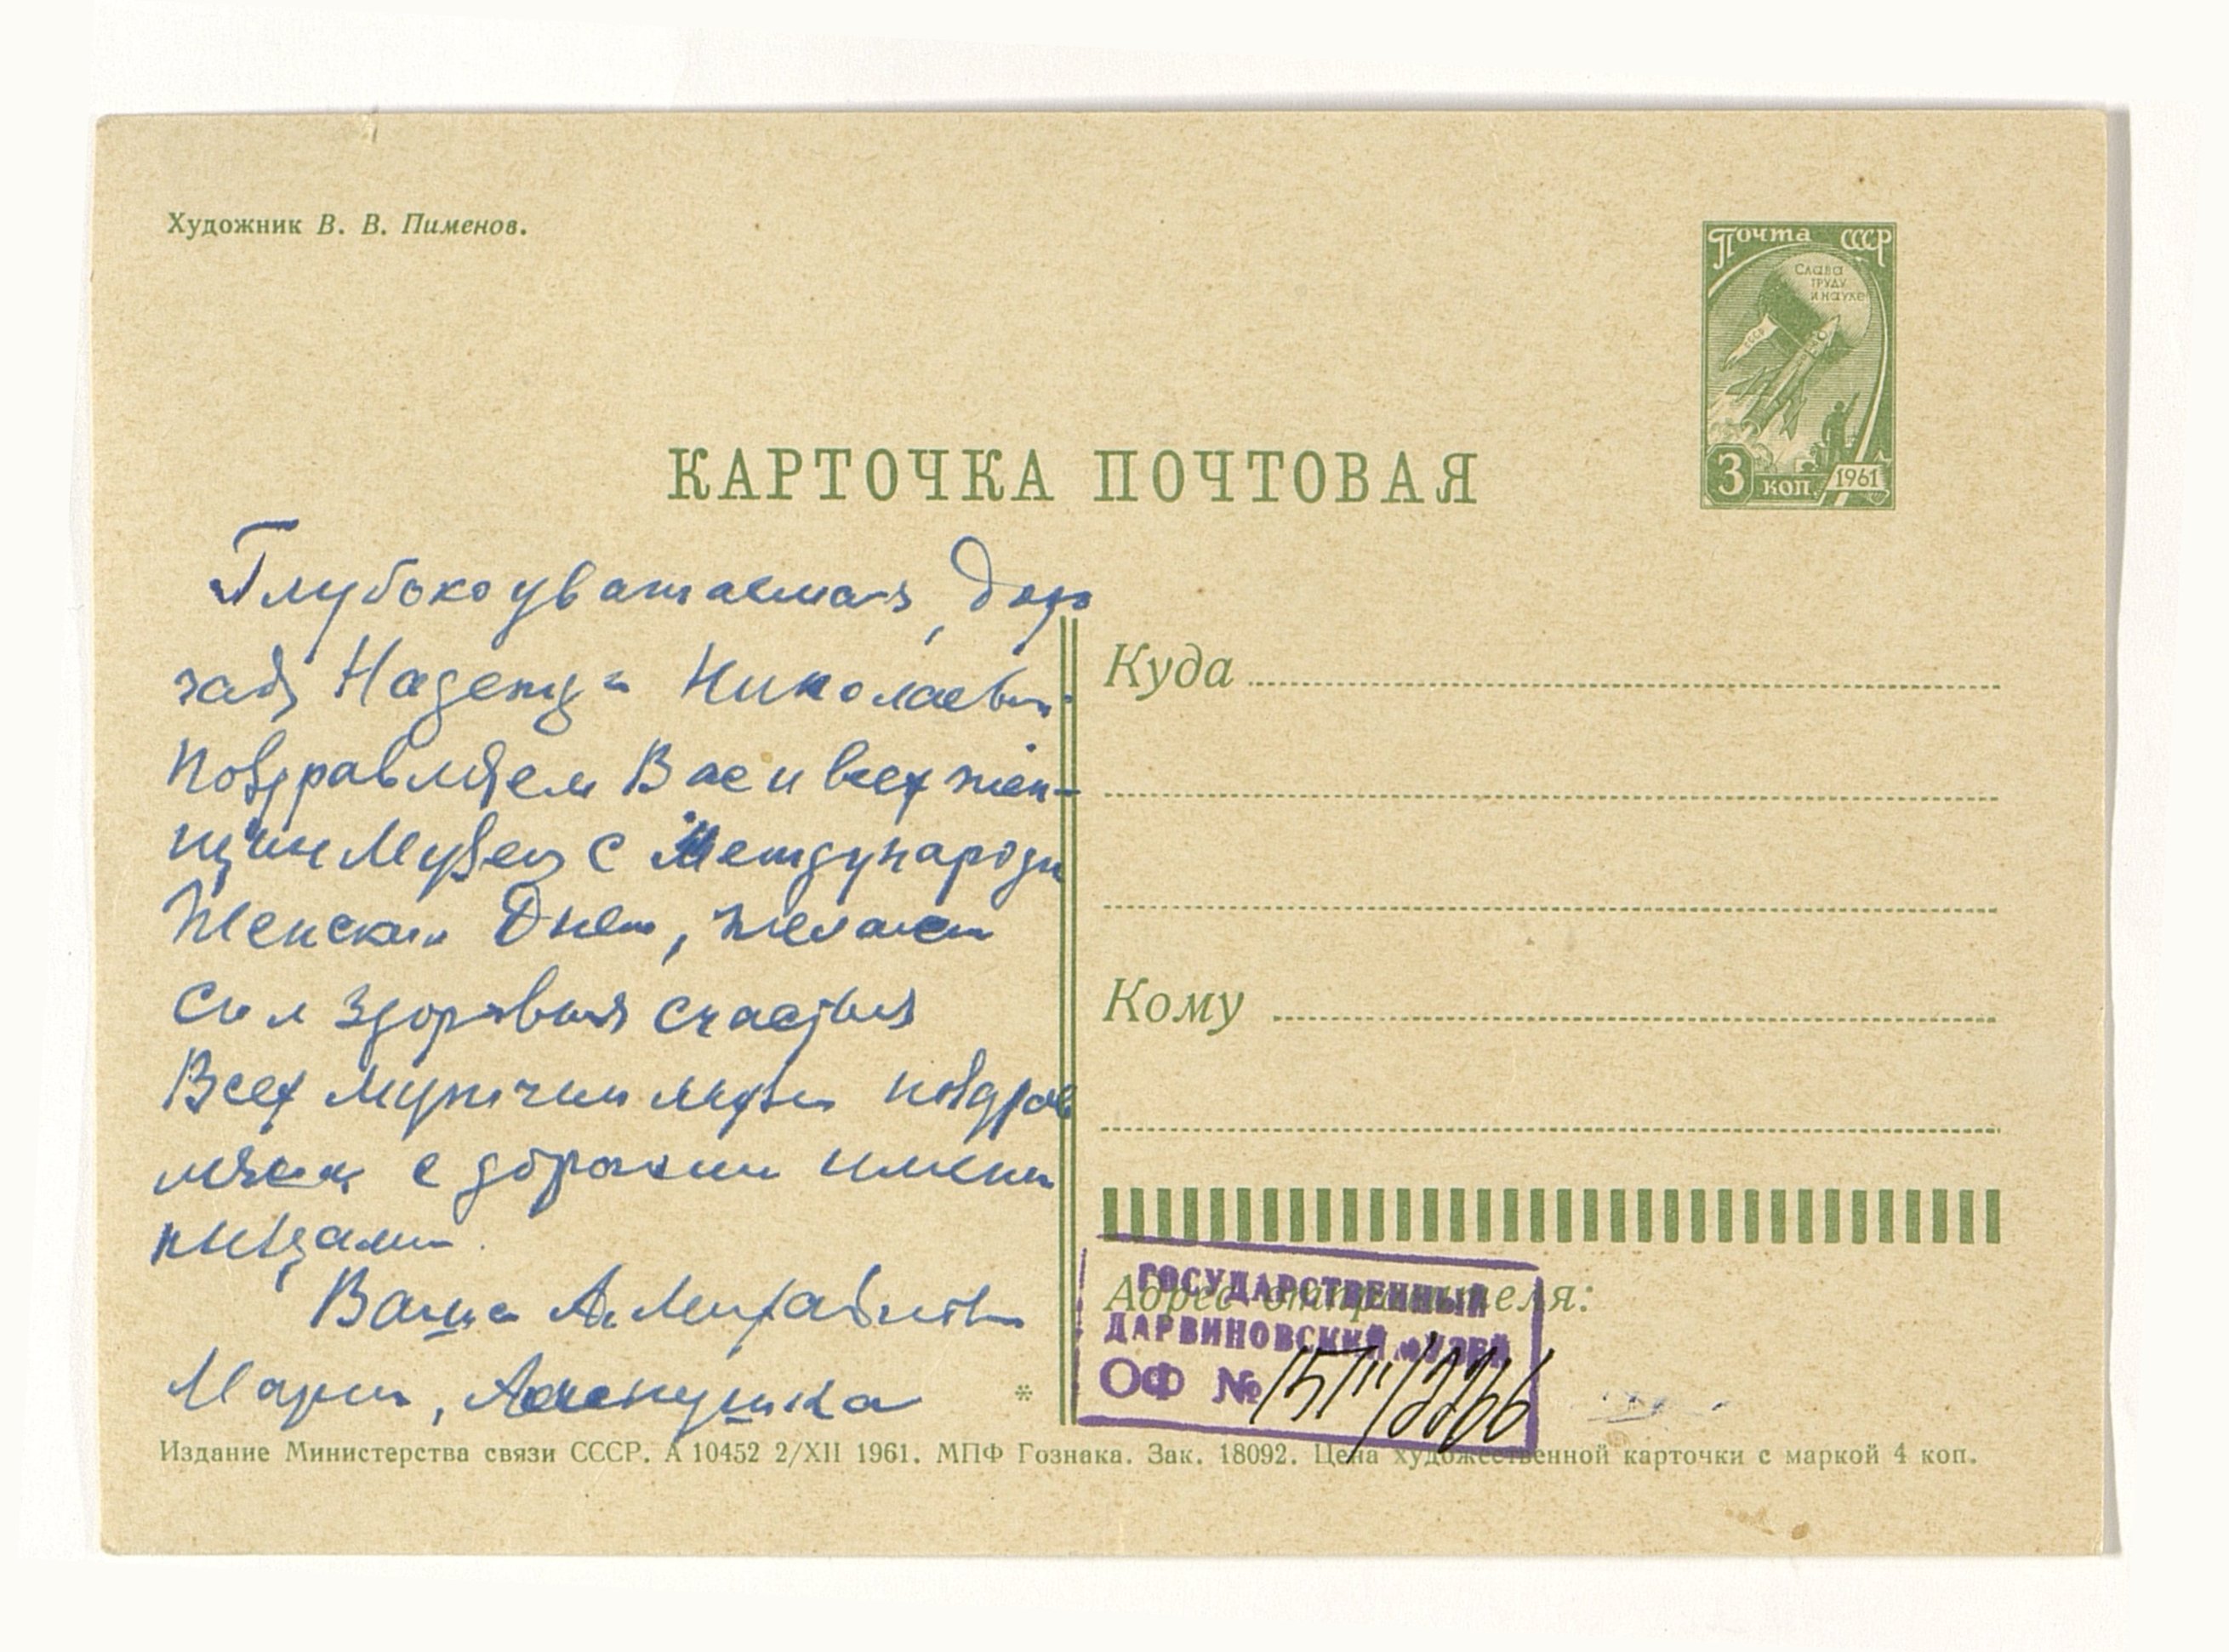 Художник В. В. Пименов.
Почта СССР
Слава
труду
и науке
СССР
3 коп. 1961
КАРТОЧКА ПОЧТОВАЯ
Глубокоуважаемая, доро
гая Надежда Николаевн
Поздравляем Вас и всех жен-
щин Музея с Международн
Женским Днем, желаем
сил здоровья счастья
Всех мужчин музея поздрав
ляем с дорогими имени
нницами.
Ваши
Мария, Аленушка
Куда
Кому
Адрес отправителя:
ГОСУДАРСТВЕННЫЙ
ДАРВИНОВСКИЙ МУЗЕЙ
ОФ №
*
Издание Министерства связи СССР. А 10452 2/XII 1961. МПФ Гознака. Зак. 18092. Цена художественной карточки с маркой 4 коп.